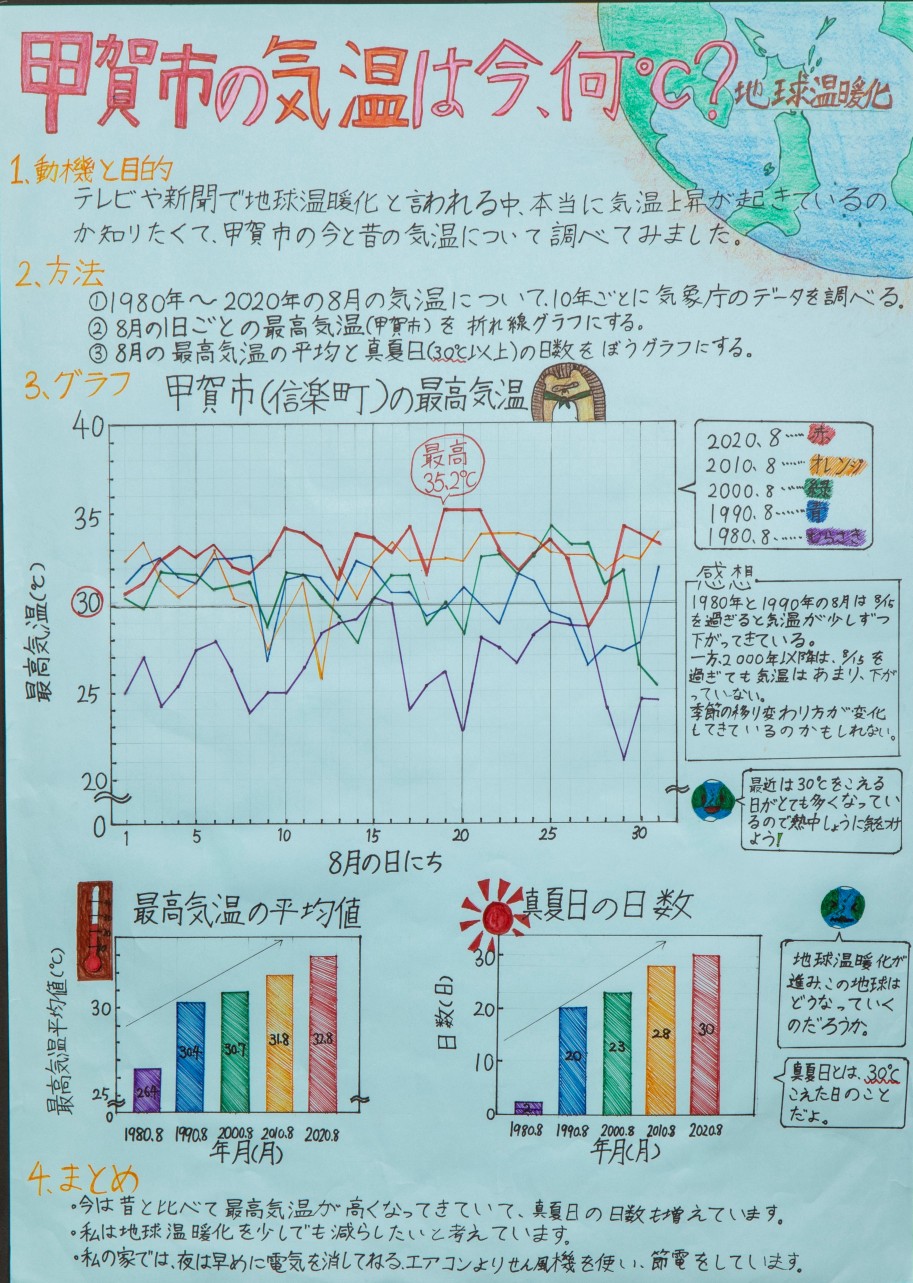 甲賀市の気温は今、何℃?
地球温暖化
1.動機と目的
テレビや新聞で地球温暖化と言われる中、本当に気温上昇が起きているの
か知りたくて、甲賀市の今と昔の気温について調べてみました。
2.方法
①1980年〜2020年の8月の気温について、10年ごとに気象庁のデータを調べる。
②8月の1日ごとの最高気温(甲賀市)を折れ線グラフにする。
③8月の最高気温の平均と真夏日(30℃以上)の日数をぼうグラフにする。
3.グラフ
甲賀市(信楽町)の最高気温
最高
35.2℃
最高気温(℃)
40
35
30
25
20
0
1 5 10 15 20 25 30
8月の日にち
2020.8……赤
2010.8……オレンジ
2000.8……緑
1990.8……青
1980.8……むらさき
感想
1980年と1990年の8月は8/15
を過ぎると気温が少しずつ
下がってきている。
一方、2000年以降は、8/15を
過ぎても気温はあまり、下が
っていない。
季節の移り変わり方が変化
してきているのかもしれない。
最近は30℃をこえる
日がとても多くなってい
るので熱中しょうに気をつけ
よう!
最高気温の平均値
最高気温平均値(℃)
30
25
0
26.4
30.4
30.7
31.8
32.8
1980.8 1990.8 2000.8 2010.8 2020.8
年月(月)
真夏日の日数
日数(日)
30
20
10
0
2
20
23
28
30
1980.8 1990.8 2000.8 2010.8 2020.8
年月(月)
地球温暖化が
進みこの地球は
どうなっていく
のだろうか。
真夏日とは、30℃
こえた日のこと
だよ。
4.まとめ
・今は昔と比べて最高気温が高くなってきていて、真夏日の日数も増えています。
・私は地球温暖化を少しでも減らしたいと考えています。
・私の家では、夜は早めに電気を消してねる、エアコンよりせん風機を使い、節電をしています。